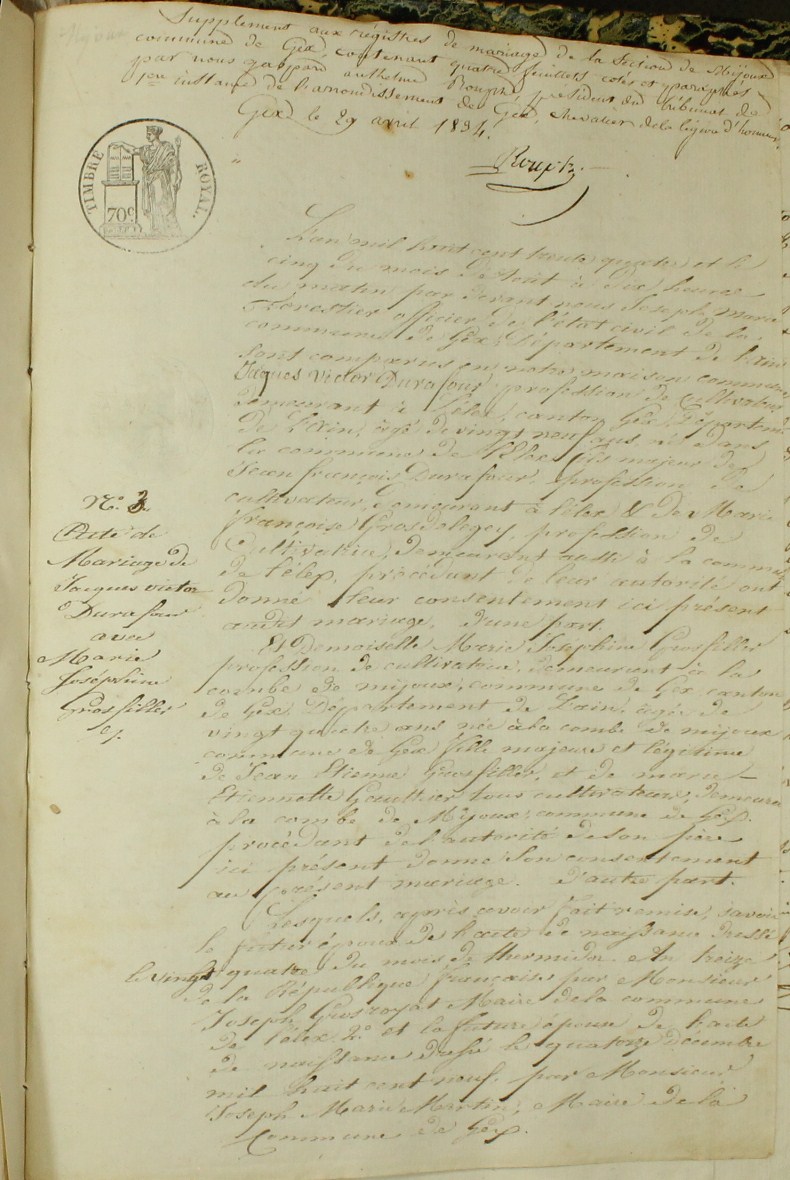 Supplement aux régistres de mariage de la section de Mijoux
commune de Gex, contenant quatre feuillets cotés et paraphés
par nous gaspard anthelme Rouph, président du tribunal de
1ere instance de l'arrondissement de Gex, chevalier de la légion d'honneur
Gex le 29 avril 1834.
Rouph
TIMBRE ROYAL
70c
L'an mil huit cent trente quatre et le
cinq du mois d'août à dix heures
du matin par devant nous Joseph Marie
Forestier officier de l'état civil de la
commune de Gex, Département de l'ain
sont comparus en notre maison commune
Jaques victor Durafour, profession de cultivateur
demeurant à lélex, canton Gex, Départemt
de l'ain, âgé de vingt neuf ans, né dans
la commune de lélex fils majeur de
Jean françois Durafour, profession de
cultivateur, demeurant à lélex & de Marie
françoise Grosdelegey, profession de
Cultivatrice, demeurant aussi à la commune
de lélex, procédant de leur autorité ont
donné leur consentement ici présent
audit mariage, d'une part.
Et Demoiselle Marie Josephine Grosfiller
profession de cultivatrice, demeurant à la
combe de mijoux, commune de Gex, canton
de Gex, Département de l'ain, agée de
vingt quatre ans née à la combe de mijoux
commune de Gex fille majeure et légitime
de Jean Etienne Grosfiller, et de marie
Etiennette Gaulthier tous cultivateurs, demeurant
à la combe de Mijoux, commune de Gex.
procédant de l'autorité de son père
ici présent donne son consentement
au présent mariage. D'autre part.
Lesquels, après avoir fait remise, savoir
le futur époux de l'acte de naissance dressé
le vingt quatre du mois de thermidor An treize
de la République française par Monsieur
Joseph Grosroyat Maire de la commune
de lélex 2o et la future épouse de l'acte
de naissance dressé le quatorze décembre
mil huit cent neuf, par Monsieur
Joseph Marie Martin, Maire de la
Commune de Gex.
No. 3.
Acte de
Mariage de
Jacques victor
Durafour
avec
Marie
Joséphine
Grosfiller